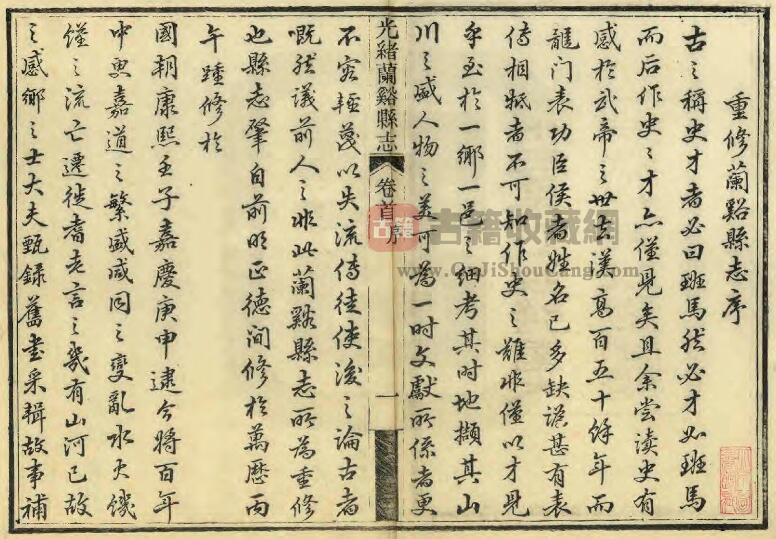 重修蘭谿縣志序
古之稱史才者必曰班馬然必才如班馬
而后作史之才亦僅見矣且余嘗读史有
感於武帝之世去漢高百五十餘年而
龍门表功臣侯者姓名已多缺讹甚有表
傳相牴者不可知作史之難非僅以才見
乎至於一鄉一邑之細考其时地擷其山
川之盛人物之美可為一时文獻所係者更
光緒蘭谿縣志
卷首序
一
不容輕蔑以失流傳徒使後之論古者
嘅然議前人之非此蘭谿縣志所為重修
也縣志肇自前明正德间修於萬歷丙
午踵修於
國朝康熙壬子嘉慶庚申逮今將百年
中更嘉道之繁盛咸同之變亂水火饑
馑之流亡遷徙耆老言之幾有山河已故
之感鄉之士大夫甄錄舊書采輯故事補
古籍
古籍收藏網
www.GuJiShouCang.com